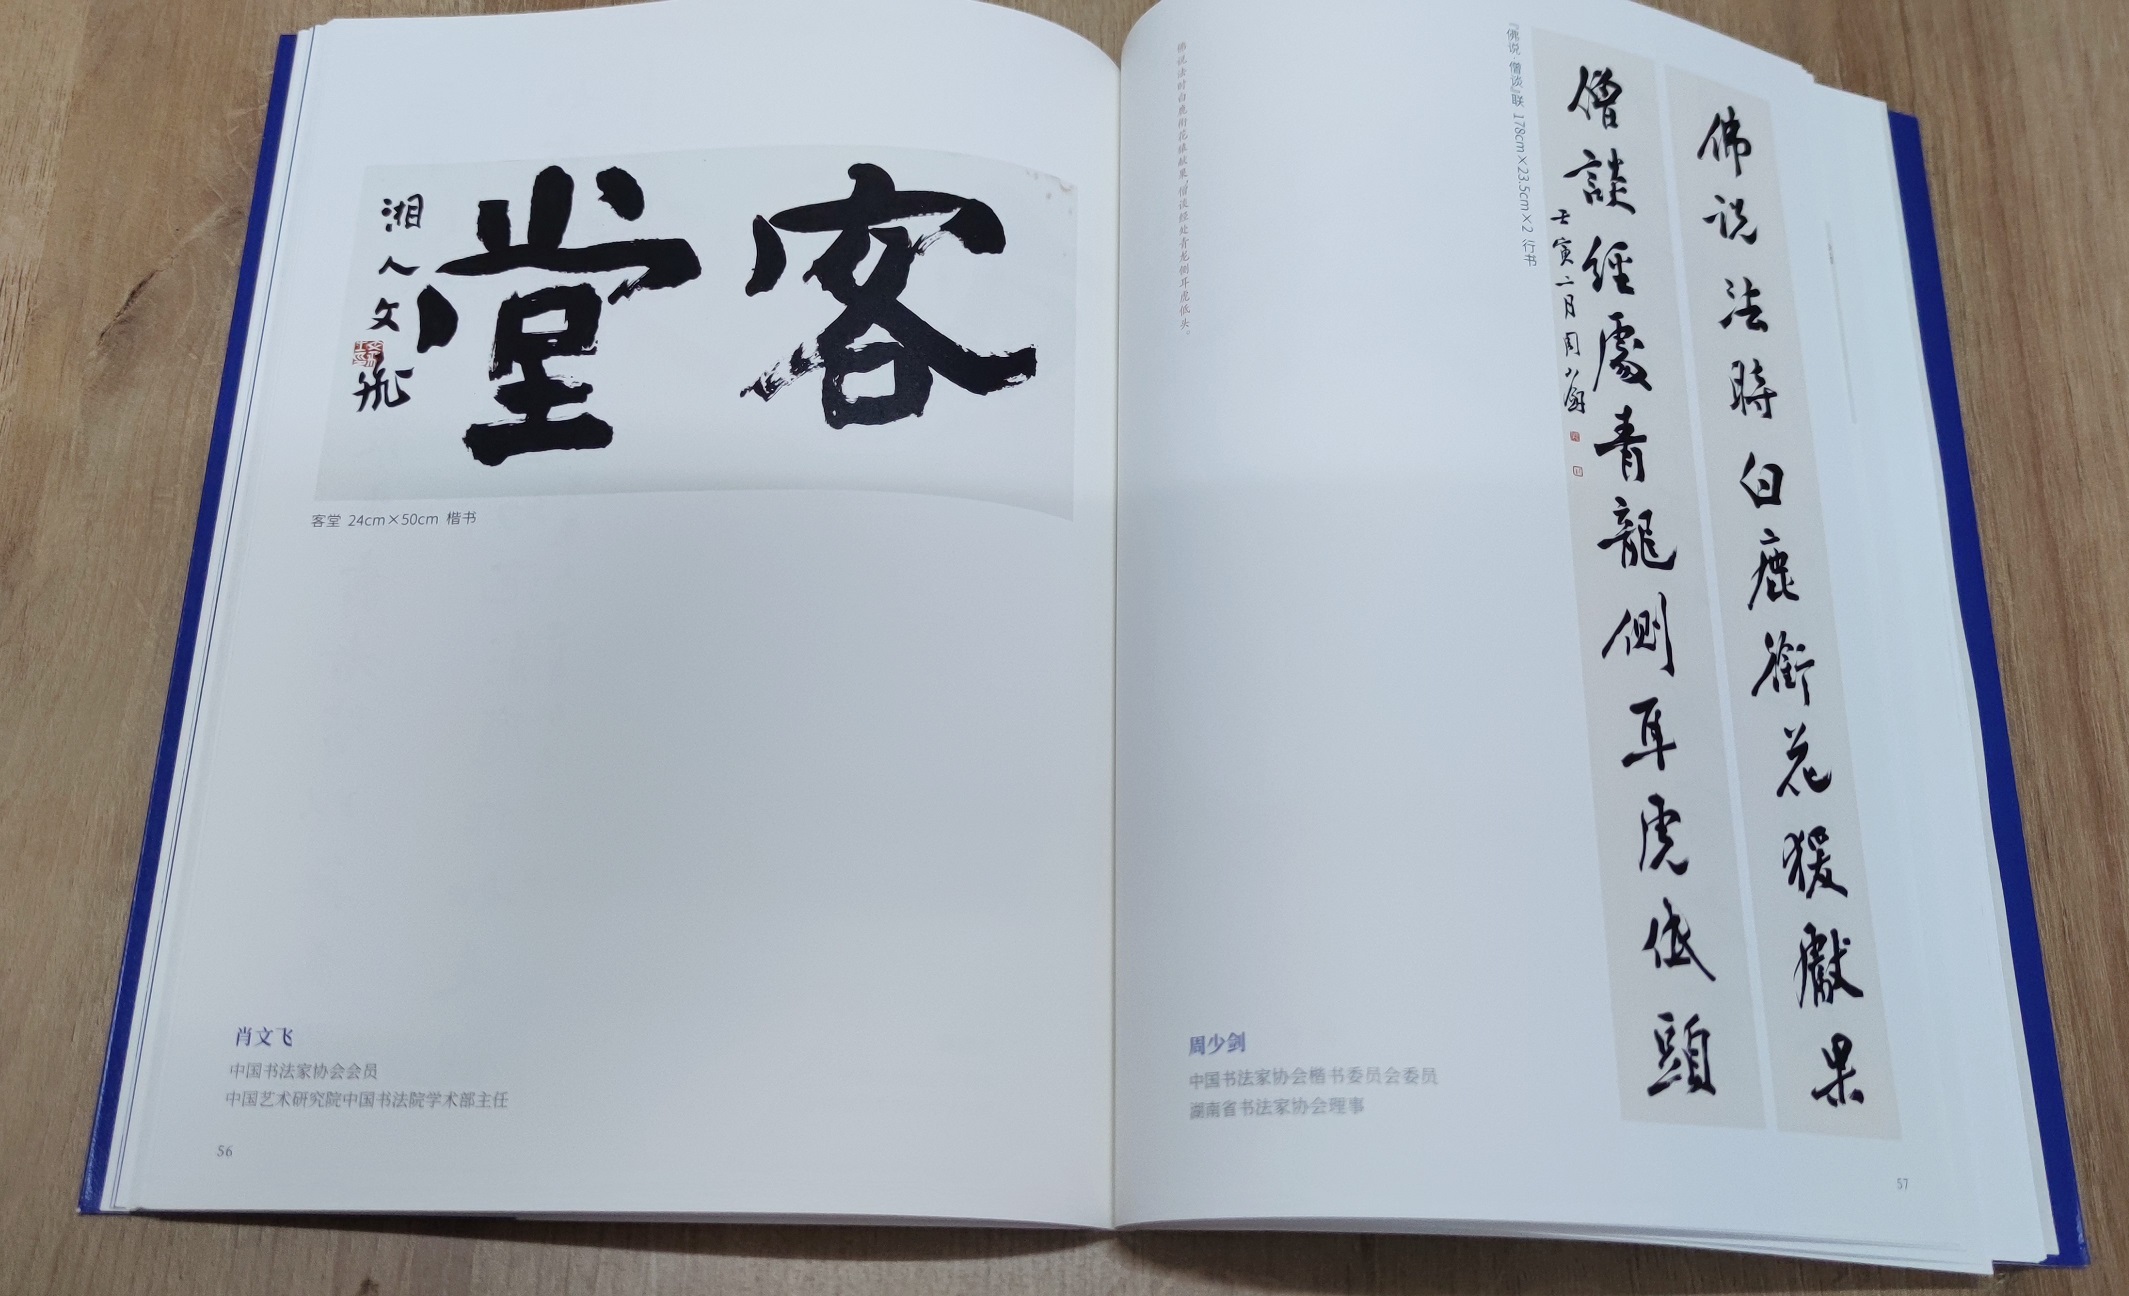 客堂
湘人文飛
客堂 24cm×50cm 楷书
肖文飞
中国书法家协会会员
中国艺术研究院中国书法院学术部主任
56
佛説法時白鹿銜花猨獻果
僧談經處青龍側耳虎低頭
壬寅二月周少劍
『佛说·僧谈』联 178cm×23.5cm×2 行书
佛说法时白鹿衔花猿献果 僧谈经处青龙侧耳虎低头。
周少剑
中国书法家协会楷书委员会委员
湖南省书法家协会理事
57